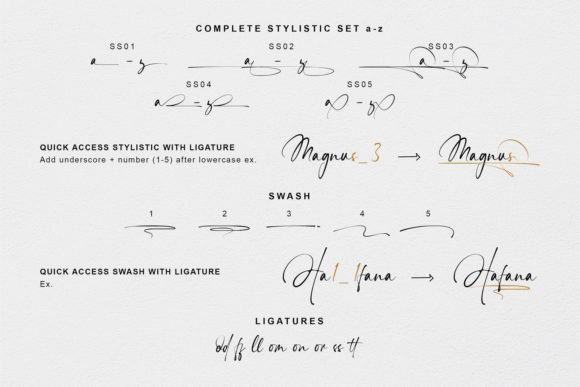 COMPLETE STYLISTIC SET a-z
SS01 SS02 SS03
a - y a - y a - y
SS04 SS05
a - y a - y
QUICK ACCESS STYLISTIC WITH LIGATURE
Add underscore + number (1-5) after lowercase ex.
Magnus_3 → Magnus
SWASH
1 2 3 4 5
QUICK ACCESS SWASH WITH LIGATURE
Ex.
Ha1_1fana → Hafana
LIGATURES
ll om on or ss tt